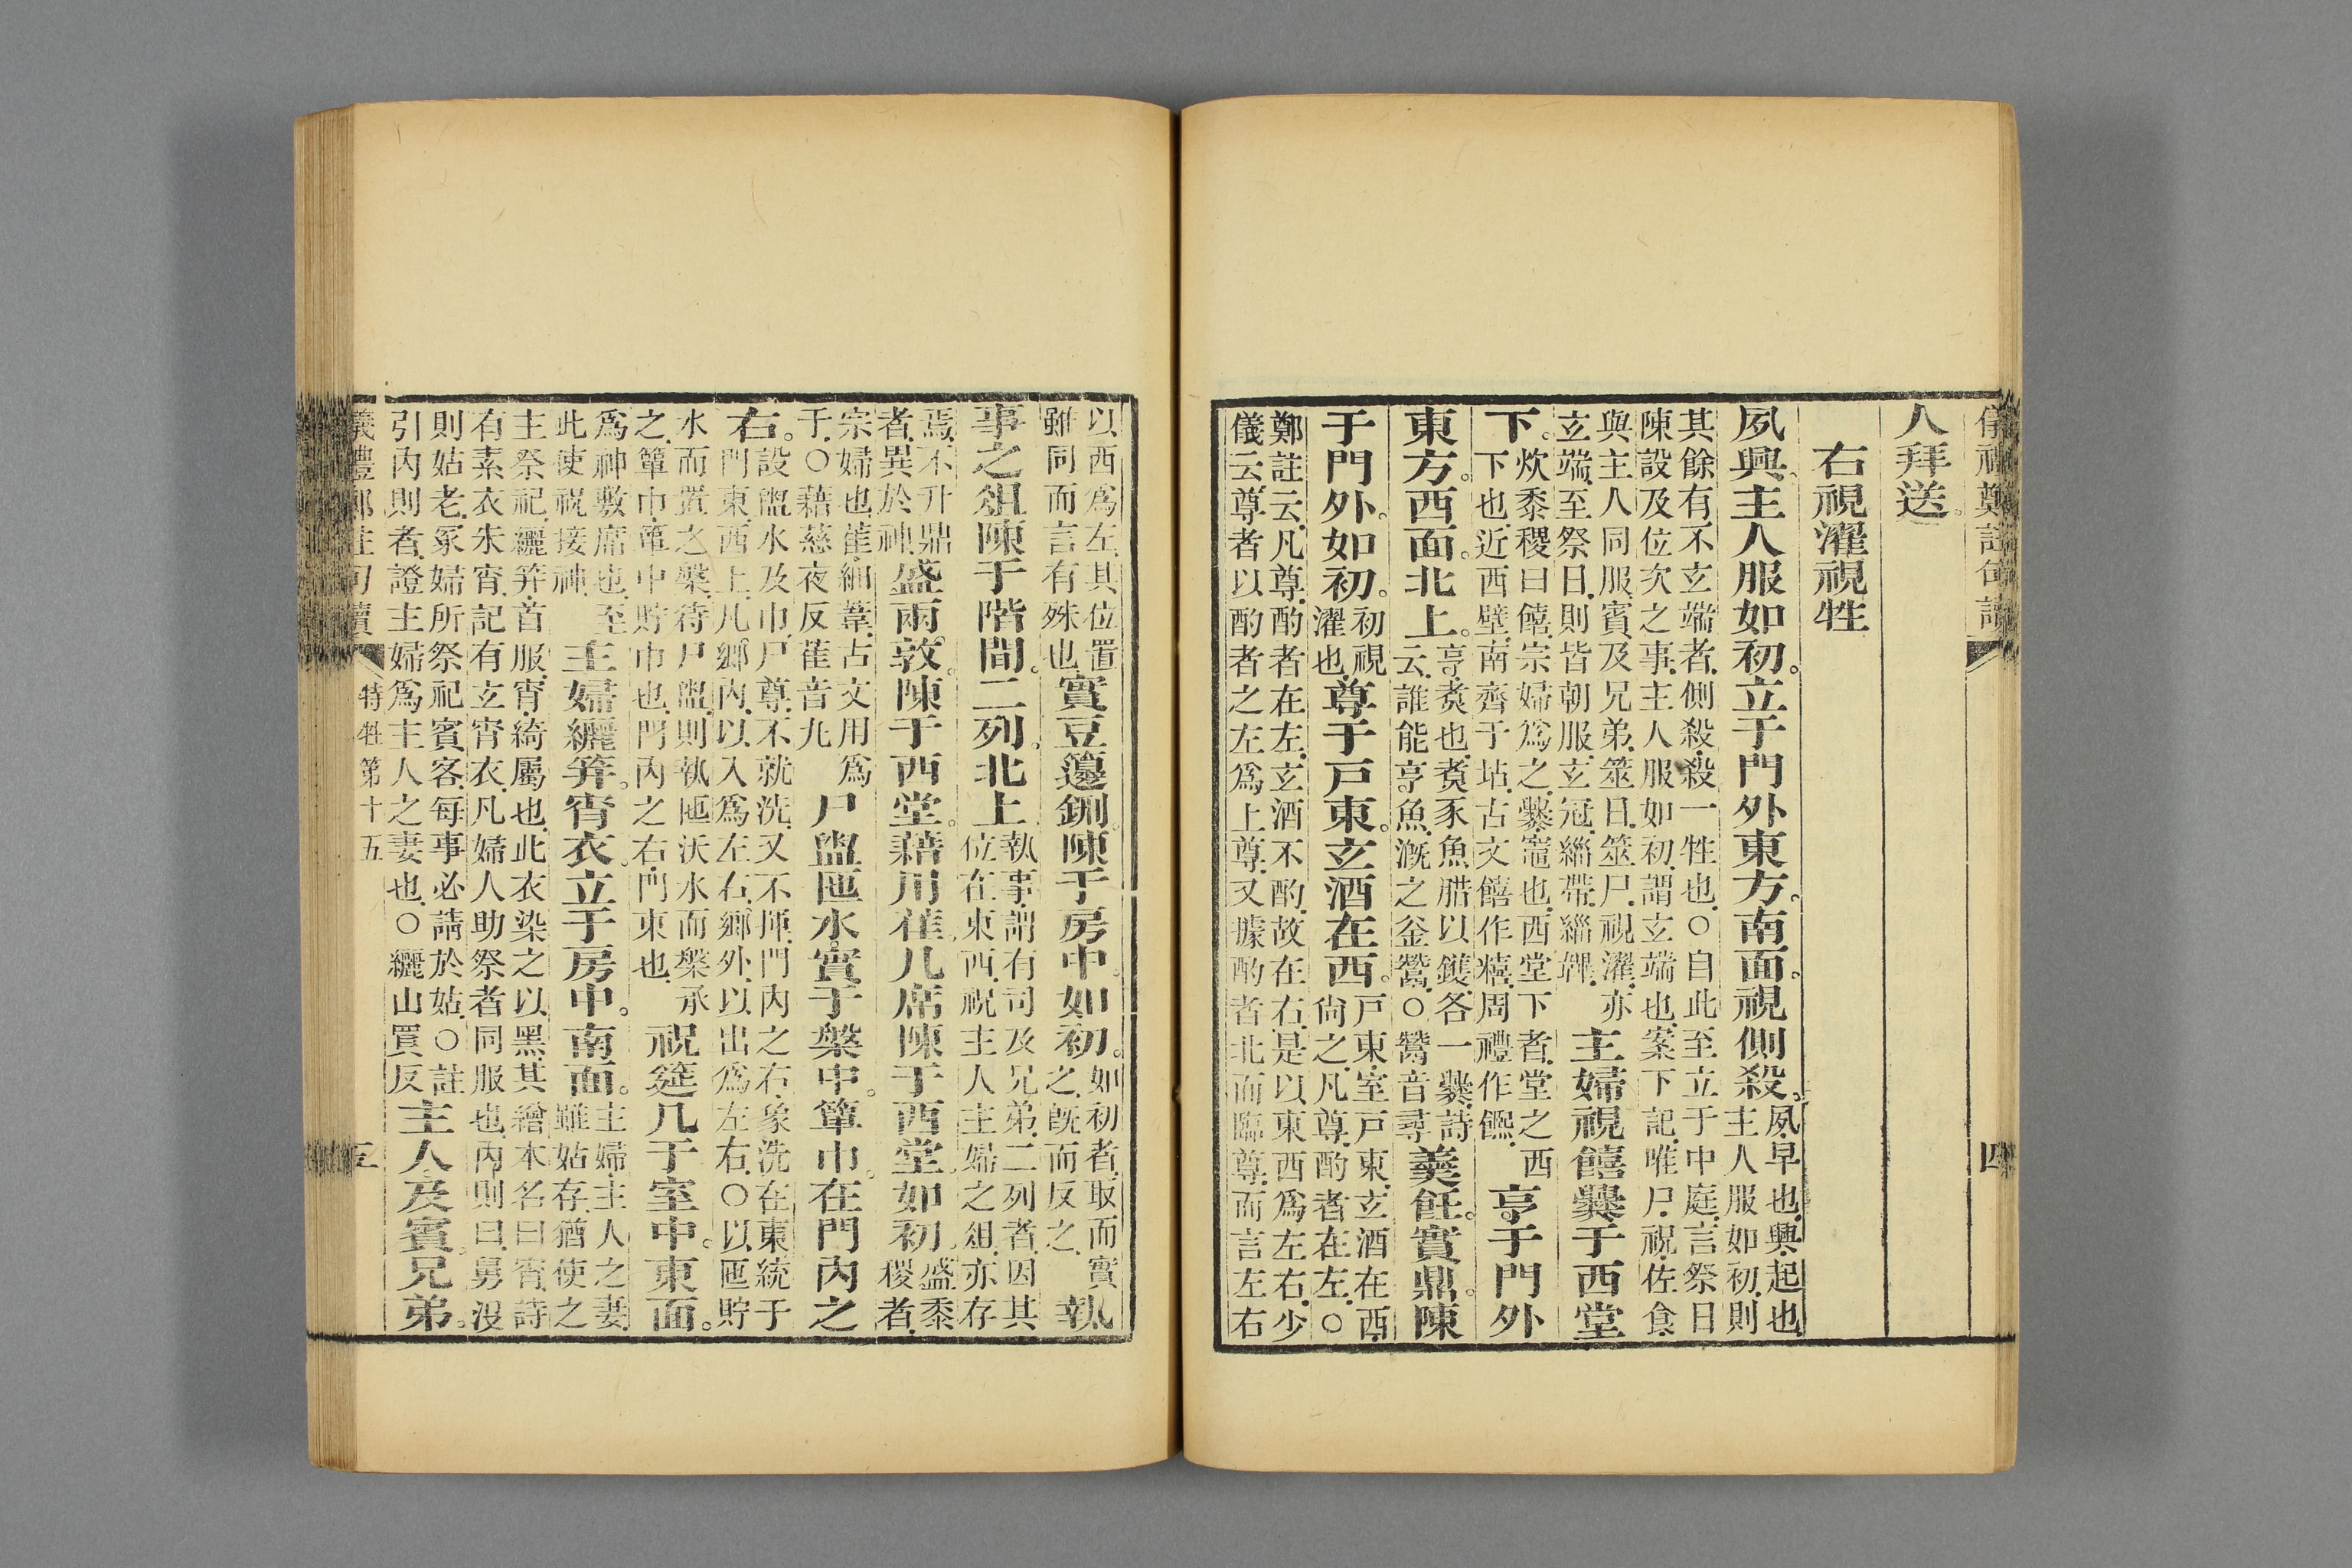 儀禮鄭註句讀 四
人拜送。
右視濯視牲
夙興。主人服如初。立于門外東方。南面。視側殺。夙早也。興。起也
主人服如初。則
其餘有不玄端者。側殺。殺一牲也。○自此至立于中庭。言祭日
陳設及位次之事。主人服如初。謂玄端也。案下記。唯尸。祝。佐食。
與主人同服。賓及兄弟。筮日。筮尸。視濯。亦
玄端。至祭日。則皆朝服玄冠。緇帶。緇韠。主婦視饎爨于西堂
下。炊黍稷曰饎。宗婦爲之。爨。竈也。西堂下者。堂之西
下也。近西壁。南齊于坫。古文饎作糦。周禮作䭈。亨于門外
東方。西面。北上。亨。煑也。煑豕魚腊以鑊。各一爨。詩
云。誰能亨魚。漑之釜鬵。○鬵音尋 羹飪。實鼎。陳
于門外。如初。初視
濯也。尊于戸東。玄酒在西。戸東。室戸東。玄酒在西。
尙之。凡尊。酌者在左。○
鄭註云。凡尊。酌者在左。玄酒不酌。故在右。是以東西爲左右。少
儀云。尊者以酌者之左爲上尊。又據酌者北面臨尊。而言左右
以西爲左。其位置
雖同。而言有殊也。實豆籩鉶。陳于房中。如初。如初者。取而實
之。旣而反之。執
事之俎。陳于階間。二列。北上。執事。謂有司及兄弟。二列者。因其
位在東西。祝主人主婦之俎。亦存
焉。不升鼎
者。異於神。盛兩敦。陳于西堂。藉用萑。几席陳于西堂。如初。盛黍
稷者。
宗婦也。萑。細葦。古文用爲
于。○藉慈夜反萑音九 尸盥匜水。實于槃中。簞巾。在門内之
右。設盥水及巾。尸尊。不就洗。又不揮。門内之右。象洗在東。統于
門東。西上。凡鄉内。以入爲左右。鄉外。以出爲左右。○以匜貯
水而置之槃。待尸盥。則執匜沃水而槃承
之。簞巾。簞中貯巾也。門内之右。門東也 祝筵几于室中。東面。
爲神敷席也。至
此使祝接神。主婦纚笄。宵衣。立于房中。南面。主婦。主人之妻。
雖姑存。猶使之
主祭祀。纚笄。首服。宵。綺屬也。此衣染之以黑。其繒本名曰宵。詩
有素衣朱宵。記有玄宵衣。凡婦人助祭者同服也。内則曰。舅沒
則姑老。冢婦所祭祀賓客。每事必請於姑。○註
引内則者。證主婦爲主人之妻也。○纚山買反 主人及賓。兄弟。
儀禮鄭註句讀 特牲第十五 五